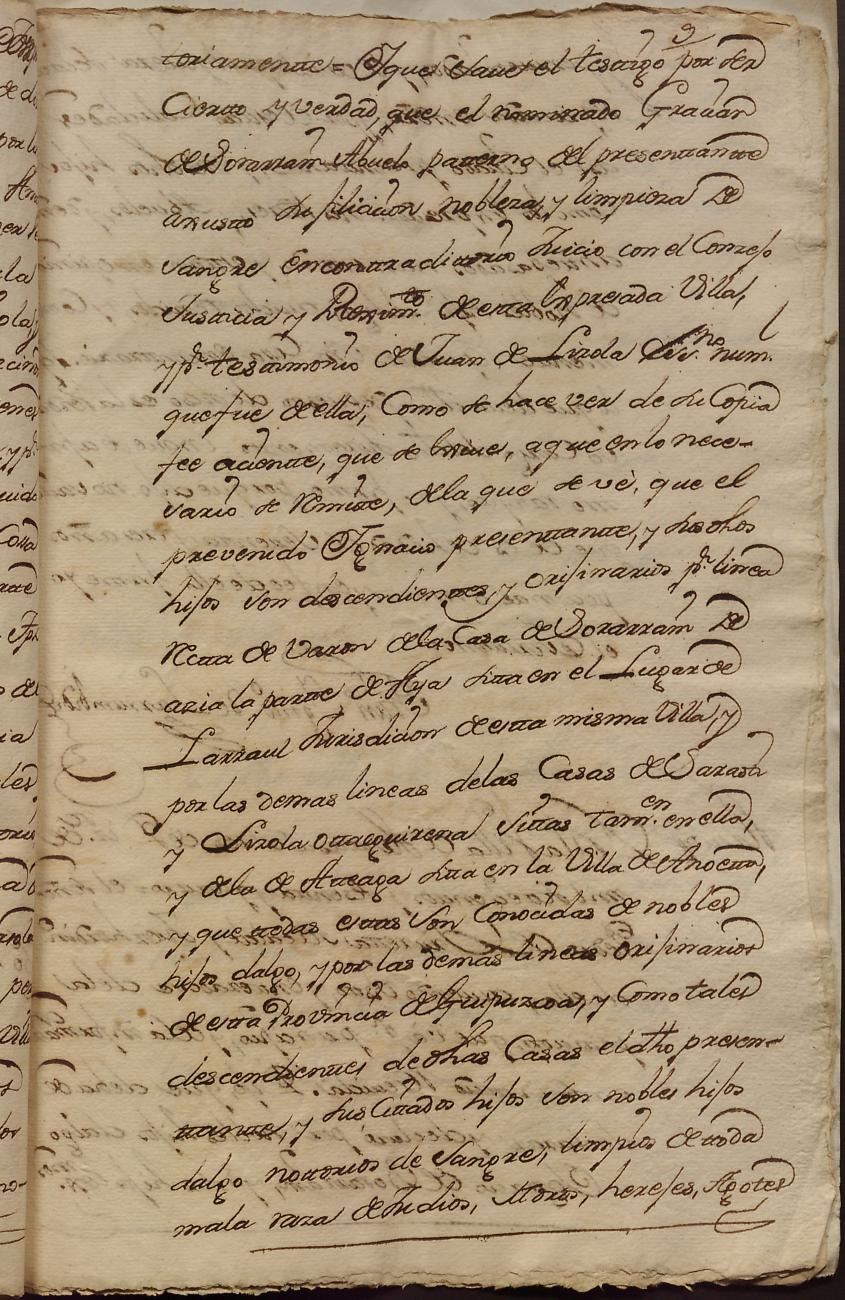 9
toriamente = Y que save el testigo por ser
Cierto y verdad, que el nominado Gravian
de Sorarrain Abuelo paterno del presentante
su filiacion nobleza, y limpieza de
sangre en contradictorio Juicio con el Concejo
Justicia y Reximto. de esta Expresada Villa,
y pr. testimonio de Juan de Lizola Essno. num.
que fue de ella, Como se hace ver de su Copia
fee aciente, que se exive, a que en lo nece-
sario se remite, de la que se vè, que el
prevenido Ygnacio presentante, y dhos
hijos son descendientes, y orijinarios pr. linea
recta de varon de la Casa de Sorarrain de
azia la parte de Aya sita en el Lugar de
Larraul Jurisdicion de esta misma Villa, y
por las demas lineas de las Casas de Sarasti
y Lizola sittas tamen. en ella,
y de la de Ateaga sita en la Villa de Anoeta,
y que todas estas son Conocidas de nobles
hijos dalgo, y por las demás lineas orijinarios
de esta Provincia de Guipuzcoa, y Como tales
descendientes de dhas Casas el dho presen-
tante, y sus Citados hijos son nobles hijos
dalgo notorios de Sangre, limpios de toda
mala raza de Judios, Moros, herejes, Agotes